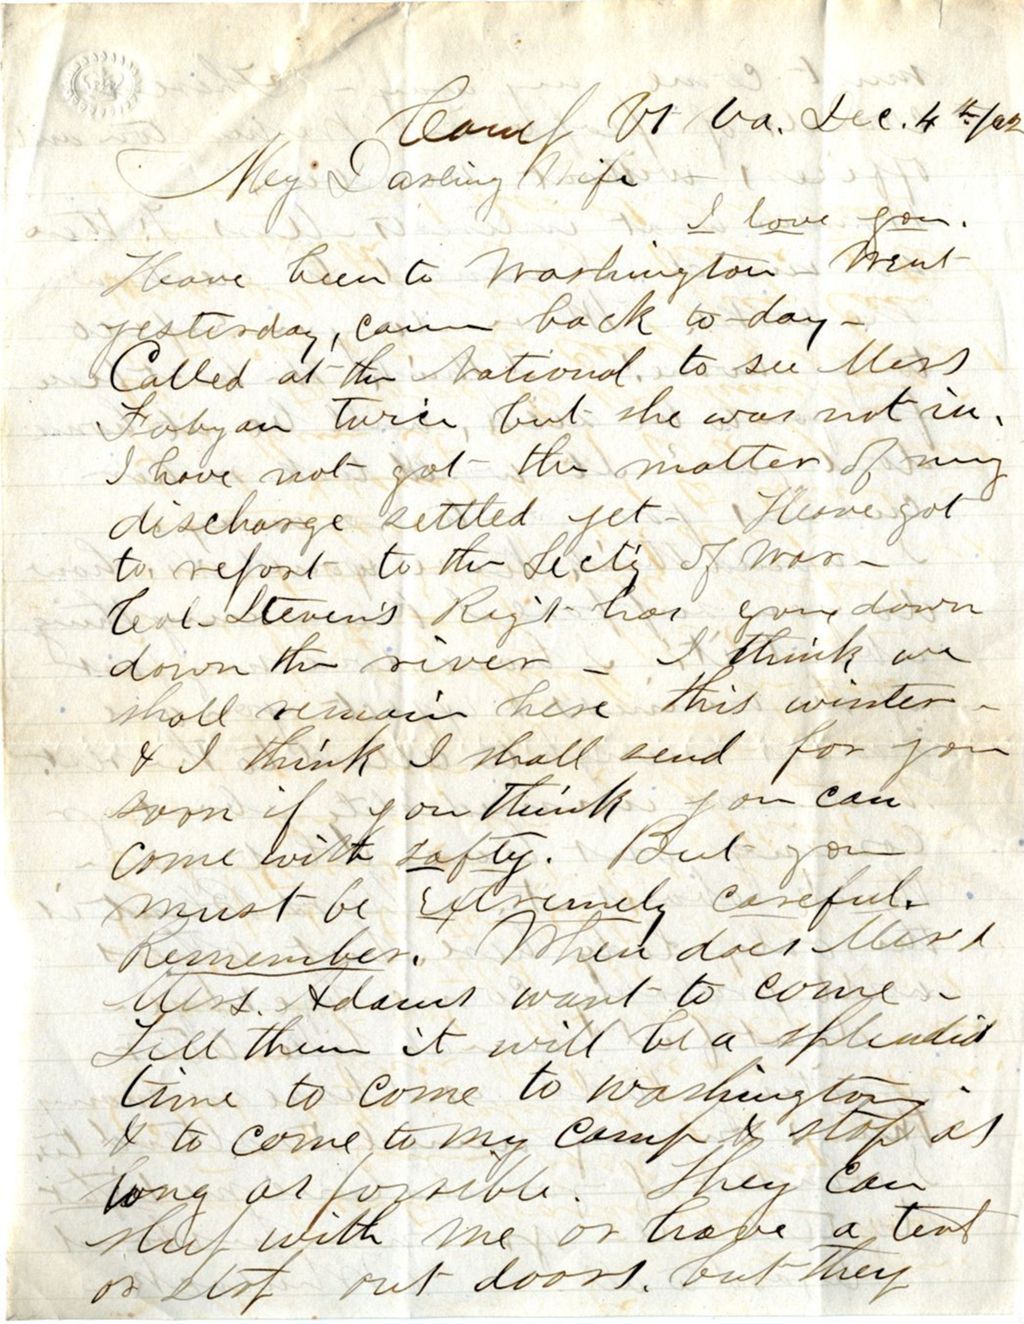 Camp Vt Va. Dec. 4th/62
My Darling Wife
I love you.
Have been to Washington Went
yesterday, came back to-day -
Called at the National. to see Mrs
Fabyan twice but she was not in.
I have not got the matter of my
discharge settled yet - Have got
to report to the Secty of War -
Col. Steven's Regt has gone down
down the river - I think we
shall remain here this winter -
& I think I shall send for you
soon if you think you can
come with safty. But you
must be Extremely careful.
Remember. When does Mr &
Mrs. Adams want to come -
Tell them it will be a splendid
time to come to Washington
& to come to my camp & stop as
long as possible. They can
sleep with me or have a tent
or stop out doors. but they